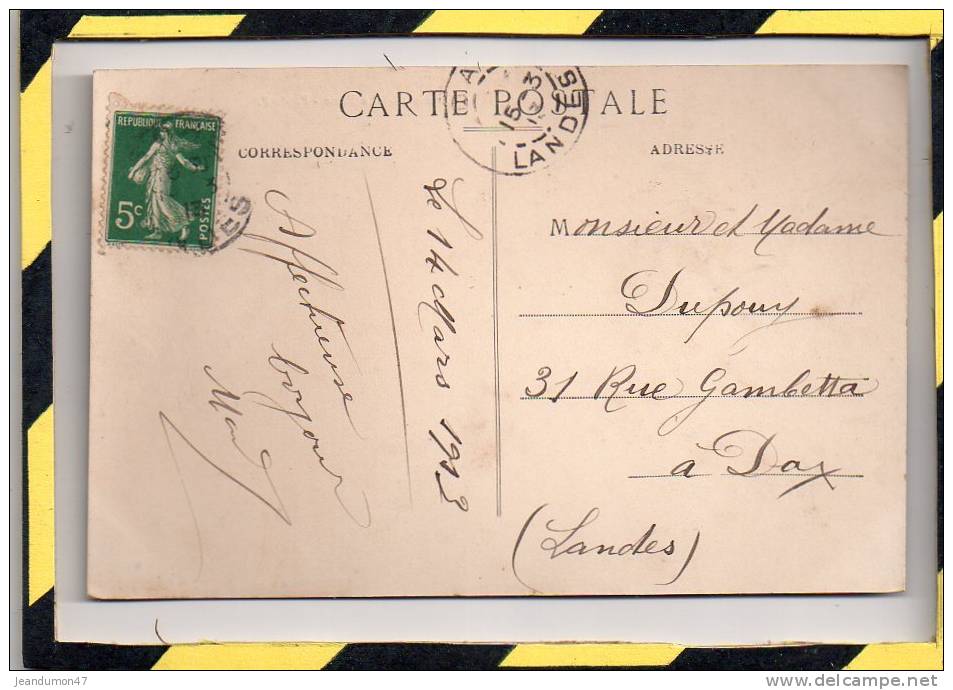 CARTE POSTALE
CORRESPONDANCE
ADRESSE
REPUBLIQUE FRANÇAISE
5c
POSTES
15 -3
LANDES
Le 14 Mars 1913
Affectueuse
bonjour
Monsieur et Madame
Dupouy
31 Rue Gambetta
à Dax
(Landes)
jeandumon47
www.delcampe.net